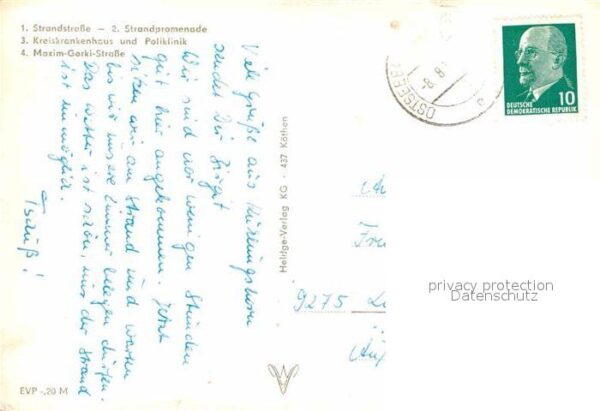 1. Strandstraße — 2. Strandpromenade
3. Kreiskrankenhaus und Poliklinik
4. Maxim-Gorki-Straße
Viele Grüße aus Kühlungsborn
sendet Dir Birgit
Wir sind vor wenigen Stunden
gut hier angekommen. Jetzt
sitzen wir am Strand und warten
bis wir unsere Zimmer belegen dürfen.
Das Wetter ist schön, nur der Strand
ist unmöglich.
Tschüß!
Heldge-Verlag KG · 437 Köthen
EVP -,20 M
OSTSEEB
DEUTSCHE
DEMOKRATISCHE REPUBLIK
10
9275
privacy protection
Datenschutz